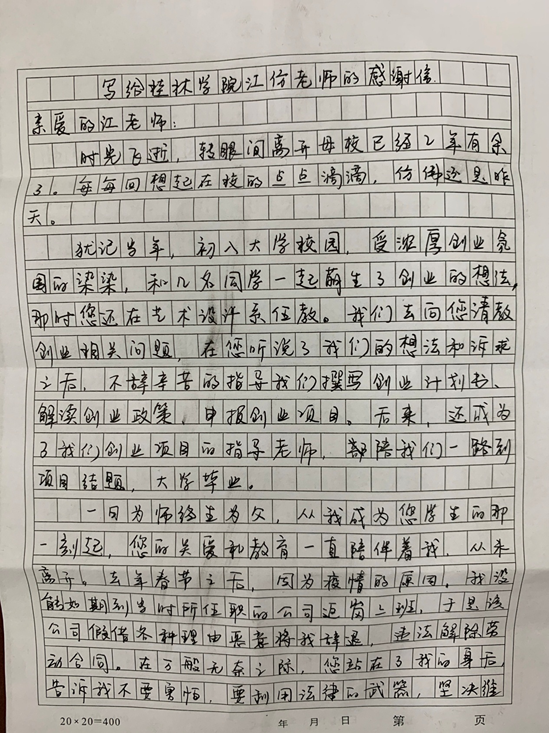 写给桂林学院江仿老师的感谢信
亲爱的江老师：
时光飞逝，转眼间离开母校已经2年有余
了。每每回想起在校的点点滴滴，仿佛还是昨
天。
犹记当年，初入大学校园，受浓厚创业氛
围的染染，和几名同学一起萌生了创业的想法，
那时您还在艺术设计系任教。我们去向您请教
创业相关问题，在您听说了我们的想法和诉求
之后，不辞辛苦的指导我们撰写创业计划书、
解读创业政策、申报创业项目。后来，还成为
了我们创业项目的指导老师，陪我们一路到
项目结题，大学毕业。
一日为师终生为父，从我成为您学生的那
一刻起，您的关爱和教育一直陪伴着我，从未
离开。去年春节之后，因为疫情的原因，我没
能如期到当时所任职的公司返岗上班，于是该
公司假借各种理由恶意将我辞退，违法解除劳
动合同。在万般无奈之际，您站在了我的身后，
告诉我不要害怕，要利用法律的武器，坚决维
20×20=400 年 月 日 第 页